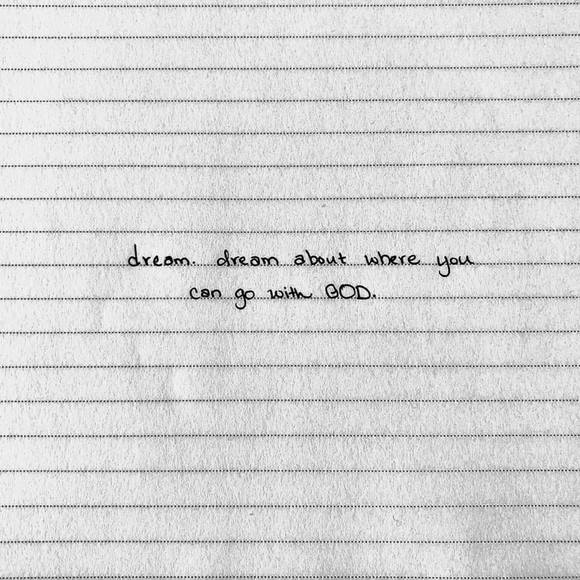 dream. dream about where you
can go with GOD.